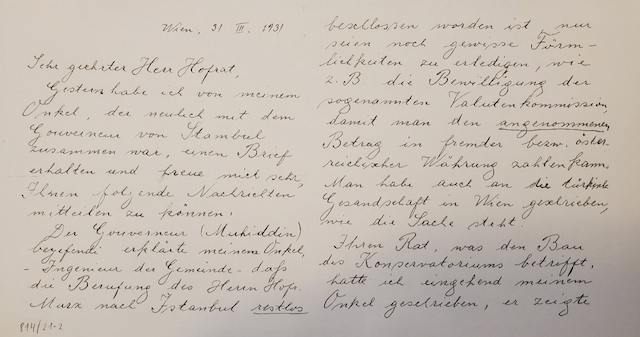 Wien, 31 III. 1931
Sehr geehrter Herr Hofrat,
Gestern habe ich von meinem
Onkel, der neulich mit dem
Gouverneur von Stambul
zusammen war, einen Brief
erhalten und freue mich sehr,
Ihnen folgende Nachrichten
mitteilen zu können:
Der Gouverneur (Muhiddin)
erklärte meinem Onkel,
- Ingenieur der Gemeinde - daß
die Berufung des Herrn Hofr.
Marx nach Istanbul restlos
814/21-2
beschlossen worden ist, nur
seien noch gewisse Förm-
lichkeiten zu erledigen, wie
z. B die Bewilligung der
sogenannten Valutenkommission,
damit man den angenommenen
Betrag in fremder bezw. öster
reichischer Währung zahlen kann.
Man habe auch an die türkische
Gesandschaft in Wien geschrieben,
wie die Sache steht.
Ihren Rat, was den Bau
des Konservatoriums betrifft,
hatte ich eingehend meinem
Onkel geschrieben, er zeigte